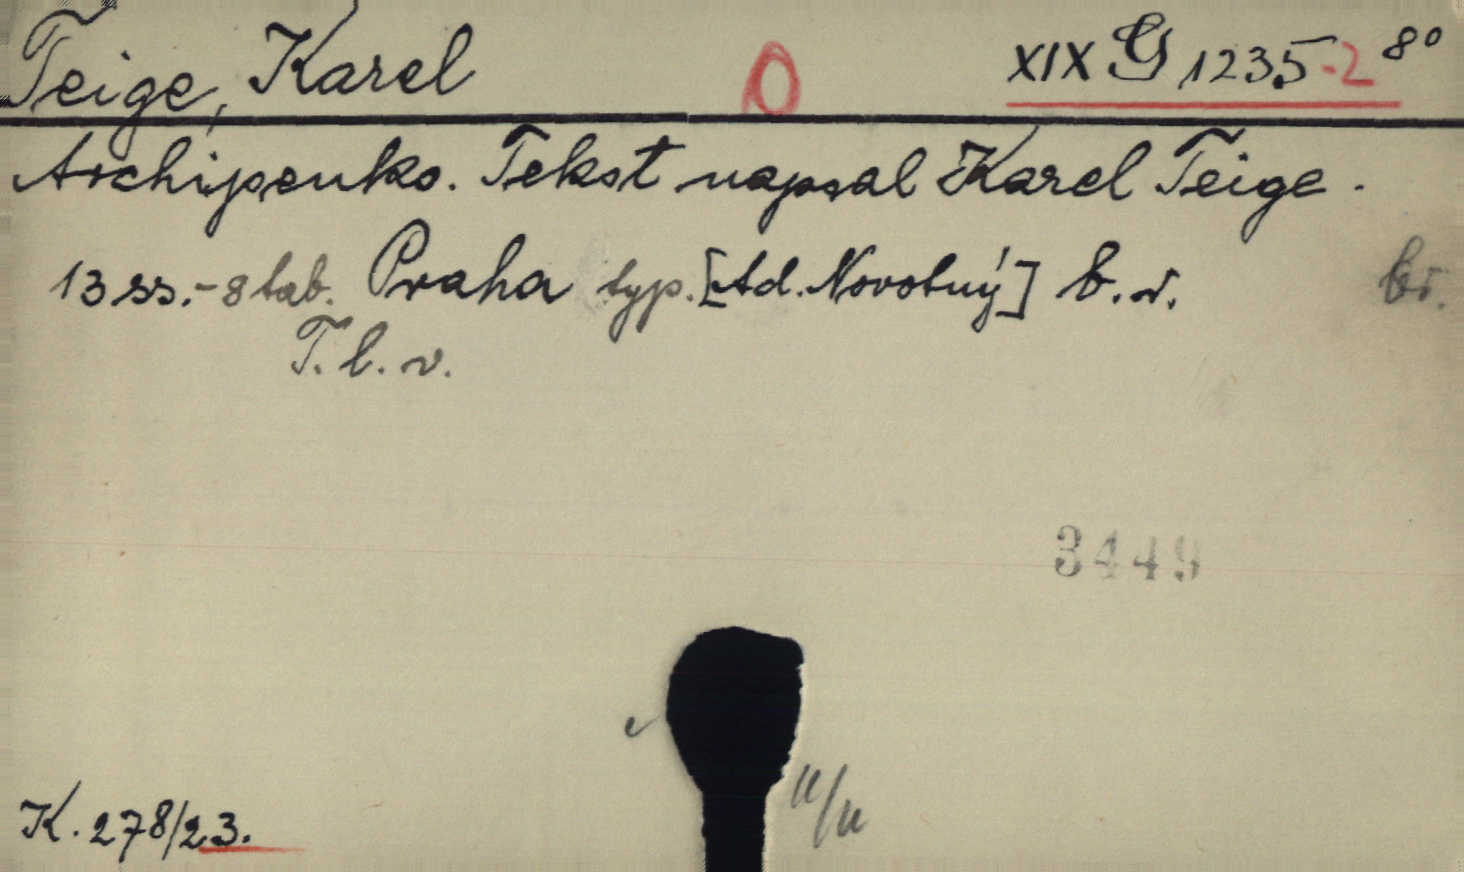 Teige, Karel O XIX G 1235-2 8°
Archipenko. Tekst napsal Karel Teige.
13 ss.-8 tab. Praha typ. [Ad. Novotný] b. r. br.
T. l. v.
3449
K. 278/23.